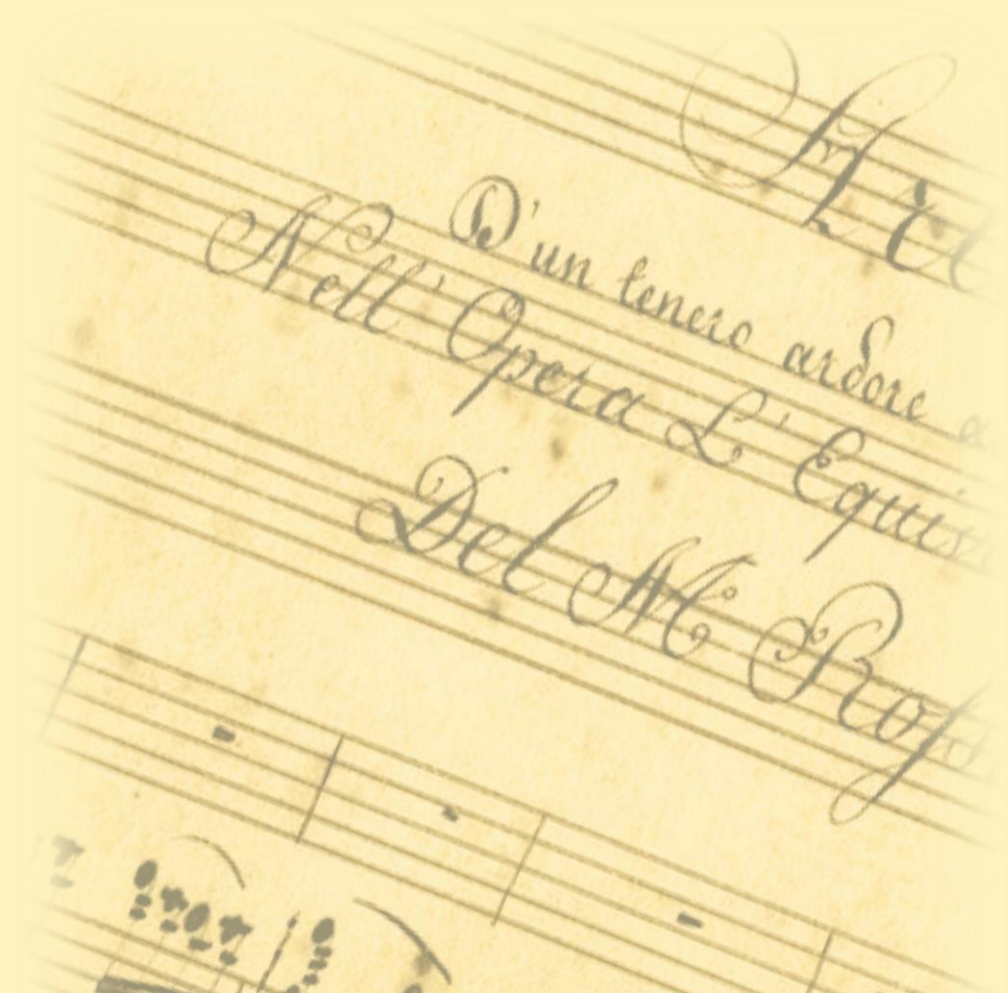 D'un tenero ardore
Nell' Opera L' Equi
Del M.º Ros